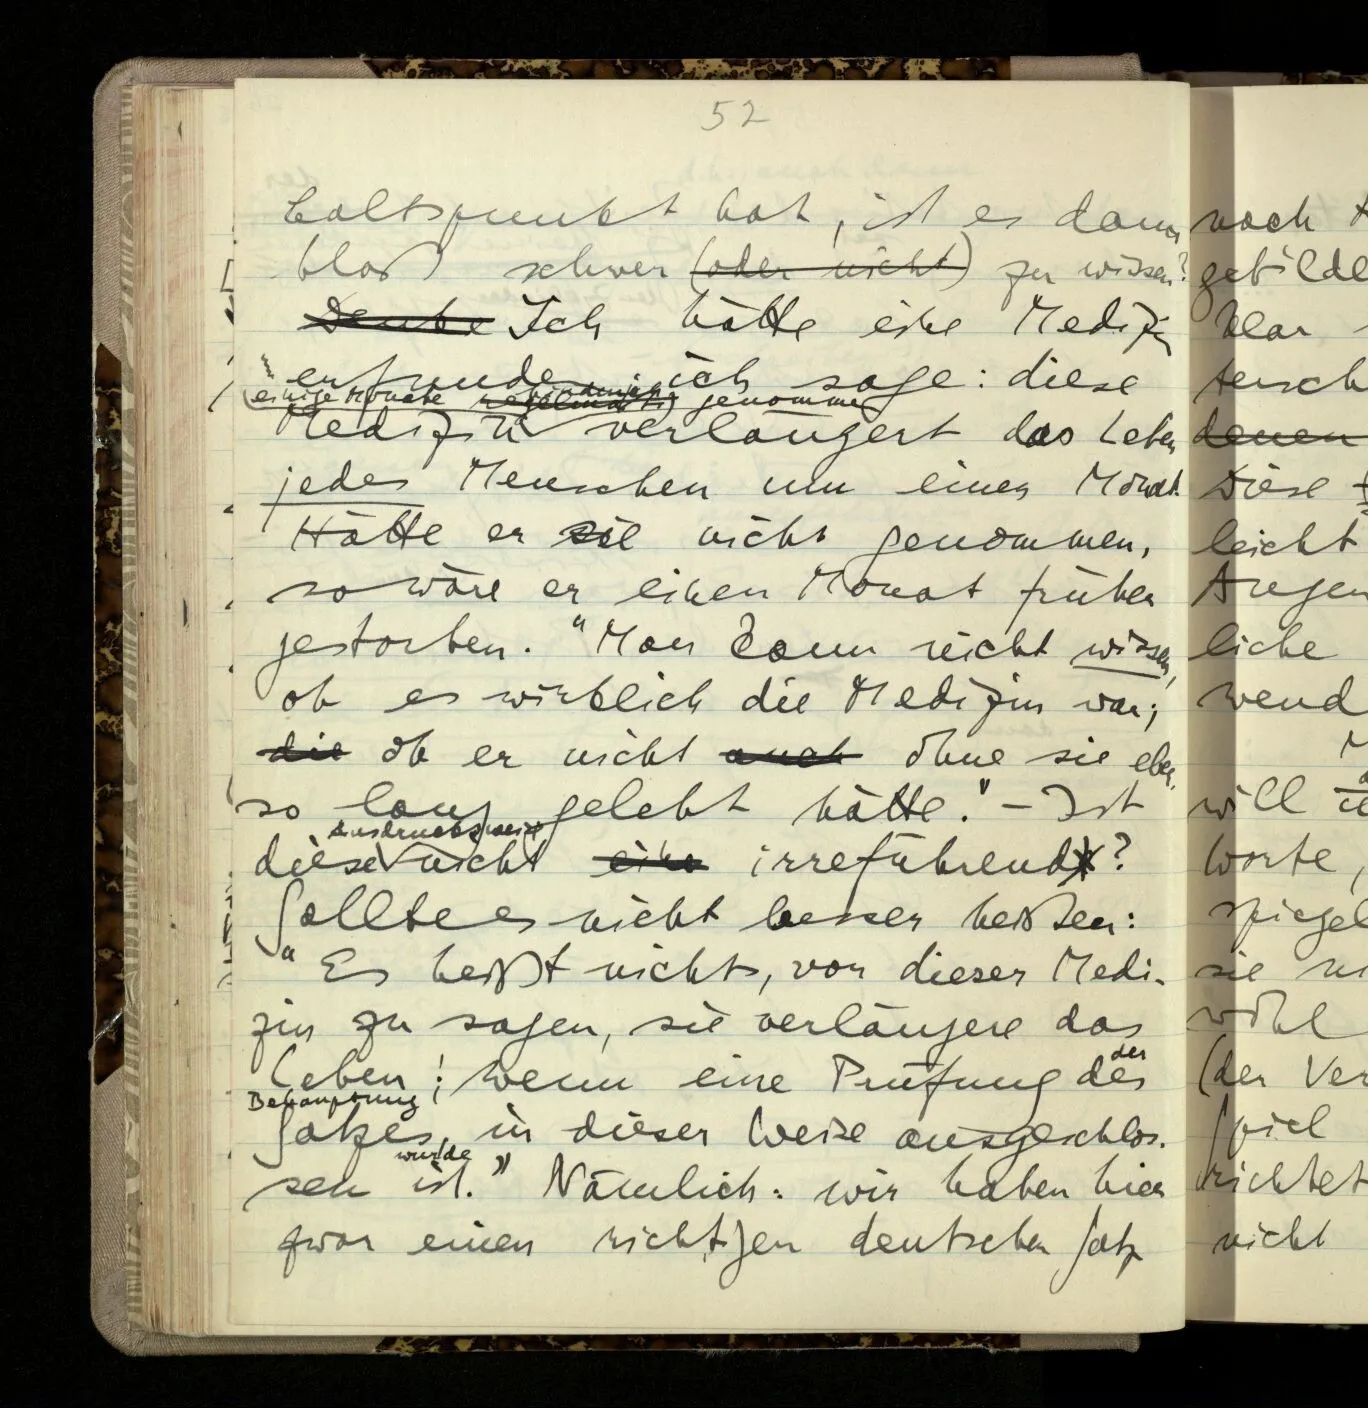 52
haltspunkt hat, ist es dann
bloß schwer (oder nicht) zu wissen?
Denke Ich hätte eine Medizin
erfunden ich sage: diese
einige Monate regelmäßig genommen
Medizin verlängert das Leben
jedes Menschen um einen Monat.
Hätte er sie nicht genommen,
so wäre er einen Monat früher
gestorben. "Man kann nicht wissen,
ob es wirklich die Medizin war;
die ob er nicht auch ohne sie eben
so lang gelebt hätte." – Ist
Ausdrucksweise
diese nicht eine irreführend?
Sollte es nicht besser heißen:
"Es heißt nichts, von dieser Medi-
zin zu sagen, sie verlängere das
Leben; wenn eine Prüfung des
der
Behauptung
Satzes, in dieser Weise ausgeschlos-
wurde
sen ist." Nämlich: wir haben hier
zwar einen richtigen deutschen Satz
noch
gebilde
klar
tersch
denen
Diese
leicht
Argen
liche
wend
will
Worte,
spiegel
sie
wohl
(der Ver
Spiel
richtet
nicht